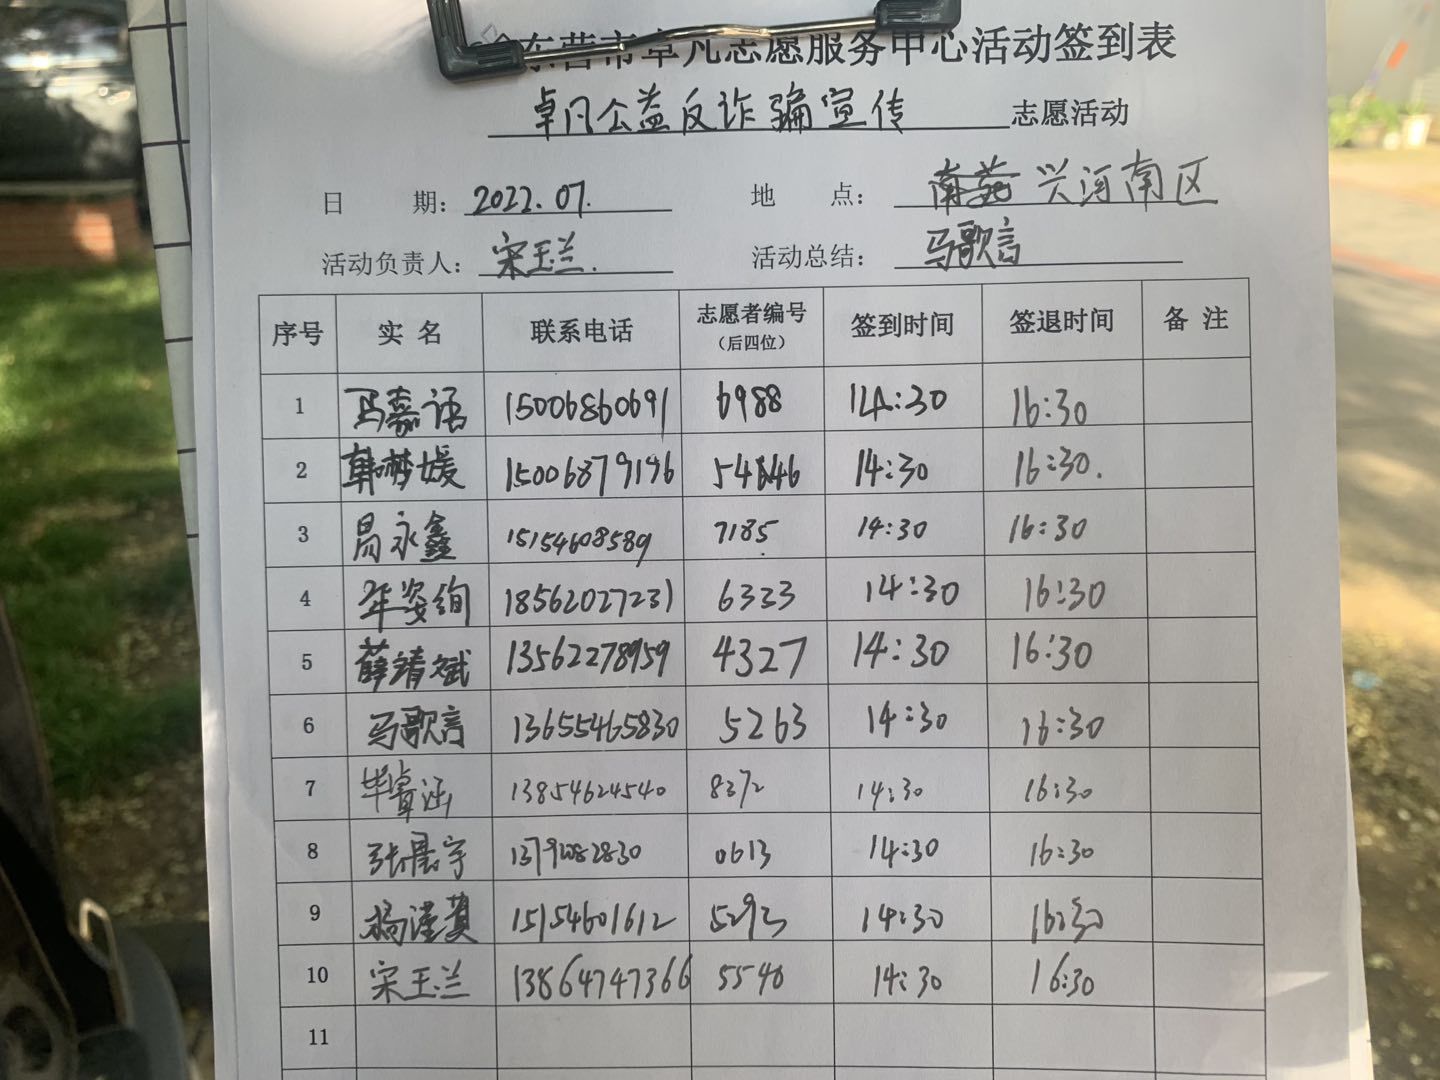 东营市卓凡志愿服务中心活动签到表
卓凡公益反诈骗宣传 志愿活动
日 期: 2022.07. 地 点: 兴河南区
活动负责人: 宋玉兰. 活动总结: 马歌言
序号 实 名 联系电话 志愿者编号 (后四位) 签到时间 签退时间 备 注
1 马嘉语 15006860691 6988 14:30 16:30
2 韩梦媛 15006879196 14:30 16:30.
3 永鑫 15154608589 7185 14:30 16:30
4 姿绚 18562027231 6323 14:30 16:30
5 薛靖斌 13562278959 4327 14:30 16:30
6 马歌言 13655465830 5263 14:30 16:30
7 卓涵 13854624540 8372 14:30 16:30
8 张晨宇 0613 14:30 16:30
9 杨谨蔓 15154601612 5293 14:30 16:30
10 宋玉兰 13864747366 5540 14:30 16:30
11